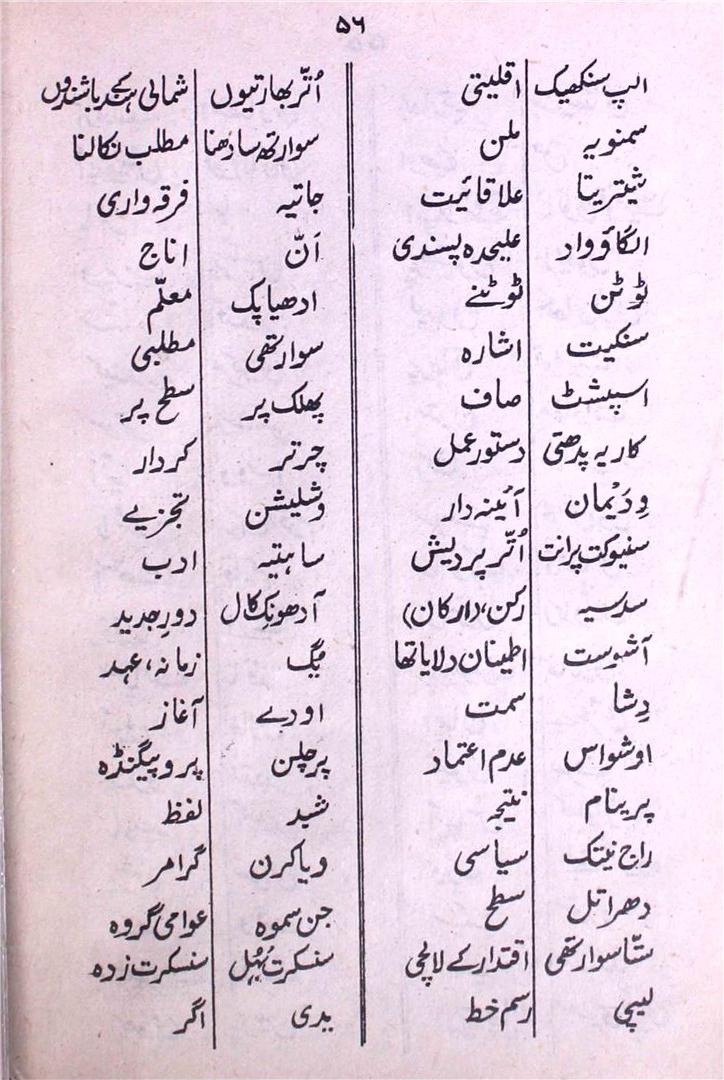 ۵۶
الپ سنکھیک اقلیتی
سمنویہ ملن
شیتریتا علاقائیت
الگاؤواد علیحدہ پسندی
ٹوٹن ٹوٹنے
سنکیت اشارہ
اسپشٹ صاف
کاریہ پدھتی دستور عمل
وِدَیْمان آئینہ دار
سنیوکت پرانت اُتّر پردیش
سدسیہ رکن، (ارکان)
آشوست اطینان دلایا تھا
دِشا سمت
اوشواس عدم اعتماد
پرینام نتیجہ
راج نیتک سیاسی
دھراتل سطح
ستّا سوارتھی اقتدار کے لالچی
لیپی رسم خط
اُتّر بھارتیوں شمالی ہند کے باشندوں
سوارتھ سادھنا مطلب نکالنا
جاتیہ فرقہ واری
اَنّ اناج
ادھیاپک معلّم
سوارتھی مطلبی
پھلک پر سطح پر
چرتر کردار
وشلیشن تجزیے
ساہتیہ ادب
آدھونک کال دورِ جدید
یُگ زمانہ، عہد
اودے آغاز
پرچلن پروپیگنڈہ
شبد لفظ
ویاکرن گرامر
جن سموہ عوامی گروہ
سنسکرت بُہُل سنسکرت زدہ
یدی اگر